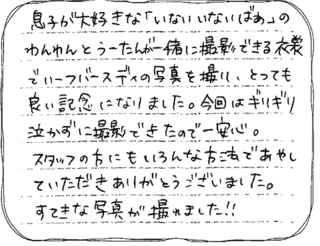 息子が大好きな「いないいないばあ」の
わんわんとうーたんが一緒に撮影できる衣裳
でハーフバースディの写真を撮り、とっても
良い記念になりました。今回はギリギリ
泣かずに撮影できたので一安心。
スタッフの方にもいろんな方法であやし
ていただきありがとうございました。
すてきな写真が撮れました!!